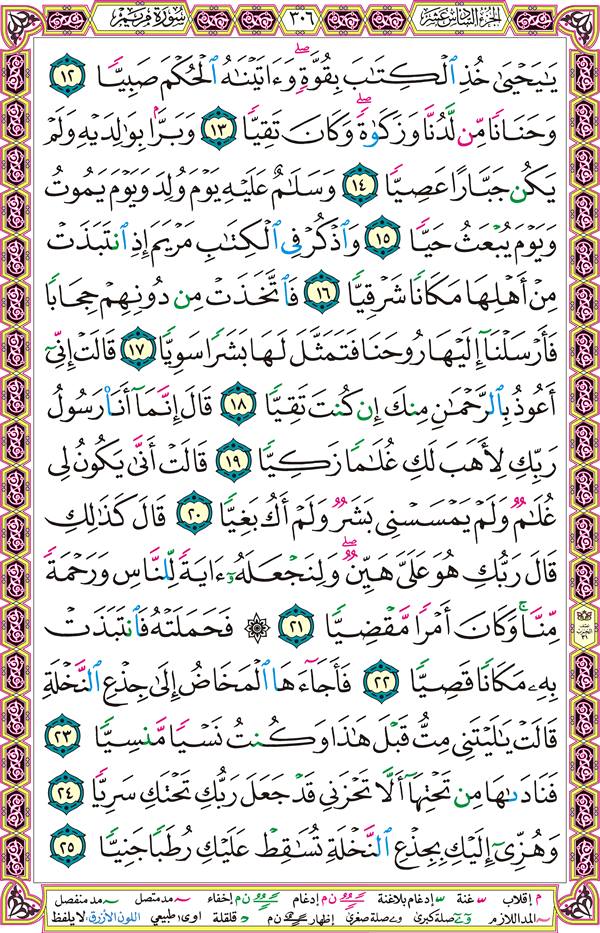 الجزء السادس عشر ٣٠٦ سورة مريم
يَـٰيَحْيَىٰ خُذِ ٱلْكِتَـٰبَ بِقُوَّةٍۢ ۖ وَءَاتَيْنَـٰهُ ٱلْحُكْمَ صَبِيًّۭا ١٢
وَحَنَانًۭا مِّن لَّدُنَّا وَزَكَوٰةًۭ ۖ وَكَانَ تَقِيًّۭا ١٣ وَبَرًّۢا بِوَٰلِدَيْهِ وَلَمْ
يَكُن جَبَّارًا عَصِيًّۭا ١٤ وَسَلَـٰمٌ عَلَيْهِ يَوْمَ وُلِدَ وَيَوْمَ يَمُوتُ
وَيَوْمَ يُبْعَثُ حَيًّۭا ١٥ وَٱذْكُرْ فِى ٱلْكِتَـٰبِ مَرْيَمَ إِذِ ٱنتَبَذَتْ
مِنْ أَهْلِهَا مَكَانًۭا شَرْقِيًّۭا ١٦ فَٱتَّخَذَتْ مِن دُونِهِمْ حِجَابًۭا
فَأَرْسَلْنَآ إِلَيْهَا رُوحَنَا فَتَمَثَّلَ لَهَا بَشَرًۭا سَوِيًّۭا ١٧ قَالَتْ إِنِّىٓ
أَعُوذُ بِٱلرَّحْمَـٰنِ مِنكَ إِن كُنتَ تَقِيًّۭا ١٨ قَالَ إِنَّمَآ أَنَا۠ رَسُولُ
رَبِّكِ لِأَهَبَ لَكِ غُلَـٰمًۭا زَكِيًّۭا ١٩ قَالَتْ أَنَّىٰ يَكُونُ لِى
غُلَـٰمٌۭ وَلَمْ يَمْسَسْنِى بَشَرٌۭ وَلَمْ أَكُ بَغِيًّۭا ٢٠ قَالَ كَذَٰلِكِ
قَالَ رَبُّكِ هُوَ عَلَىَّ هَيِّنٌۭ ۖ وَلِنَجْعَلَهُۥٓ ءَايَةًۭ لِّلنَّاسِ وَرَحْمَةًۭ
مِّنَّا ۚ وَكَانَ أَمْرًۭا مَّقْضِيًّۭا ٢١ ۞ فَحَمَلَتْهُ فَٱنتَبَذَتْ
بِهِۦ مَكَانًۭا قَصِيًّۭا ٢٢ فَأَجَآءَهَا ٱلْمَخَاضُ إِلَىٰ جِذْعِ ٱلنَّخْلَةِ
قَالَتْ يَـٰلَيْتَنِى مِتُّ قَبْلَ هَـٰذَا وَكُنتُ نَسْيًۭا مَّنسِيًّۭا ٢٣
فَنَادَىٰهَا مِن تَحْتِهَآ أَلَّا تَحْزَنِى قَدْ جَعَلَ رَبُّكِ تَحْتَكِ سَرِيًّۭا ٢٤
وَهُزِّىٓ إِلَيْكِ بِجِذْعِ ٱلنَّخْلَةِ تُسَـٰقِطْ عَلَيْكِ رُطَبًۭا جَنِيًّۭا ٢٥
م إقلاب غنة إدغام بلاغنة ن م إدغام ن م إخفاء مد متصل مد منفصل
المد اللازم صلة كبرى صلة صغرى إظهار ن م قلقلة اوى طبيعي اللون الأزرق: لا يلفظ